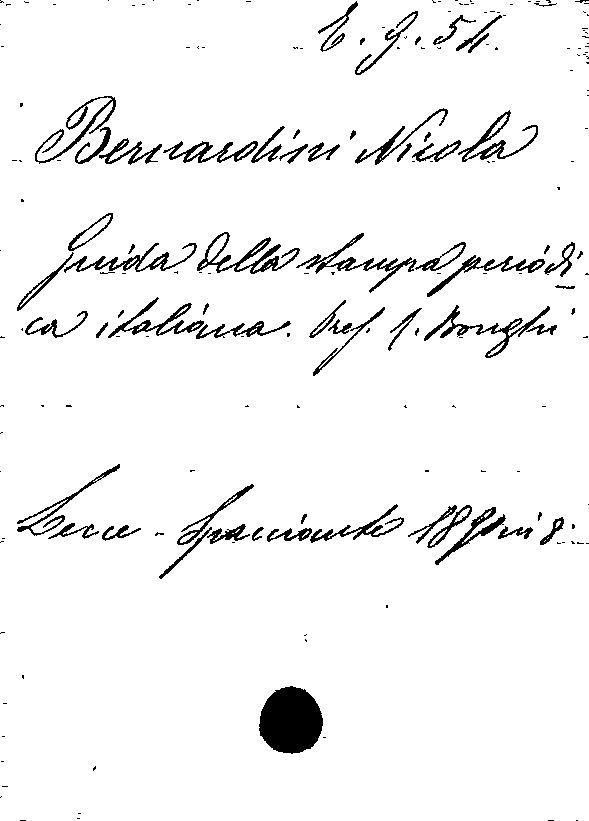 E. G. 54.
Bernardini Nicola
Guida della stampa periodi
ca italiana. Pref. R. Bonghi
Lecce - Spacciante 1890 in 8.